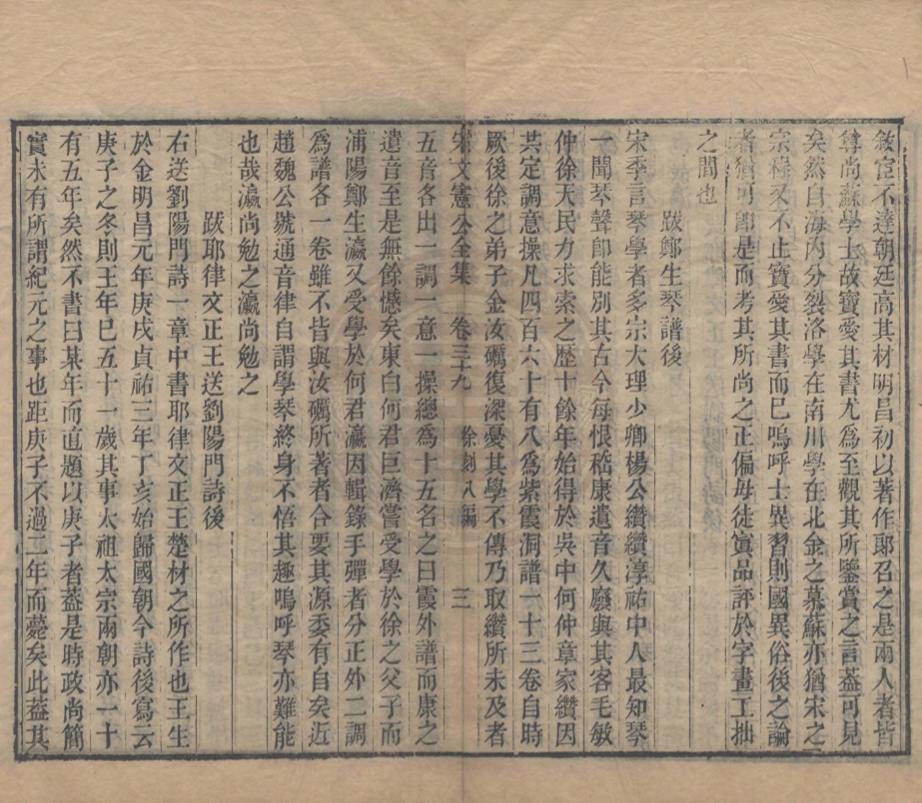 敘宦不達朝廷高其材明昌初以著作郎召之是兩人者皆
尊尚蘇學士故寶愛其書尤爲至觀其所鑒賞之言葢可見
矣然自海內分裂洛學在南川學在北金之慕蘇亦猶宋之
宗程又不止寶愛其書而巳嗚呼士異習則國異俗後之論
者猶可卽是而考其所尚之正偏毋徒寘品評於字畫工拙
之間也
跋鄭生琴譜後
宋季言琴學者多宗大理少卿楊公纘纘淳祐中人最知琴
一聞琴聲卽能別其古今每恨嵇康遺音久廢與其客毛敏
仲徐天民力求索之歷十餘年始得於吳中何仲章家纘因
共定調意操凡四百六十有八爲紫霞洞譜一十三卷自時
厥後徐之弟子金汝礪復深憂其學不傳乃取纘所未及者
宋文憲公全集 卷三十九 徐刻八編 三
五音各出一調一意一操總爲十五名之曰霞外譜而康之
遺音至是無餘憾矣東白何君巨濟嘗受學於徐之父子而
浦陽鄭生瀛又受學於何君瀛因輯錄手彈者分正外二調
爲譜各一卷雖不皆與汝礪所著者合要其源委有自矣近
趙魏公號通音律自謂學琴終身不悟其趣嗚呼琴亦難能
也哉瀛尚勉之瀛尚勉之
跋耶律文正王送劉陽門詩後
右送劉陽門詩一章中書耶律文正王楚材之所作也王生
於金明昌元年庚戌貞祐三年丁亥始歸國朝今詩後寫云
庚子之冬則王年巳五十一歲其事太祖太宗兩朝亦一十
有五年矣然不書曰某年而直題以庚子者葢是時政尚簡
實未有所謂紀元之事也距庚子不過二年而薨矣此葢其